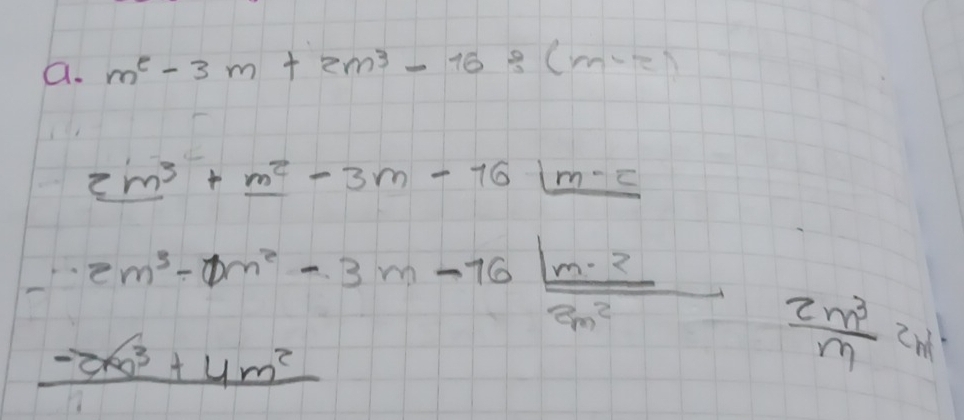 a. m² - 3m + 2m³ - 16 : (m-2)
2m³ + m² - 3m - 16 | m-2
- 2m³ - 1m² - 3m - 16 | m-2
2m²
2m³/m 2m
-2m³ + 4m²